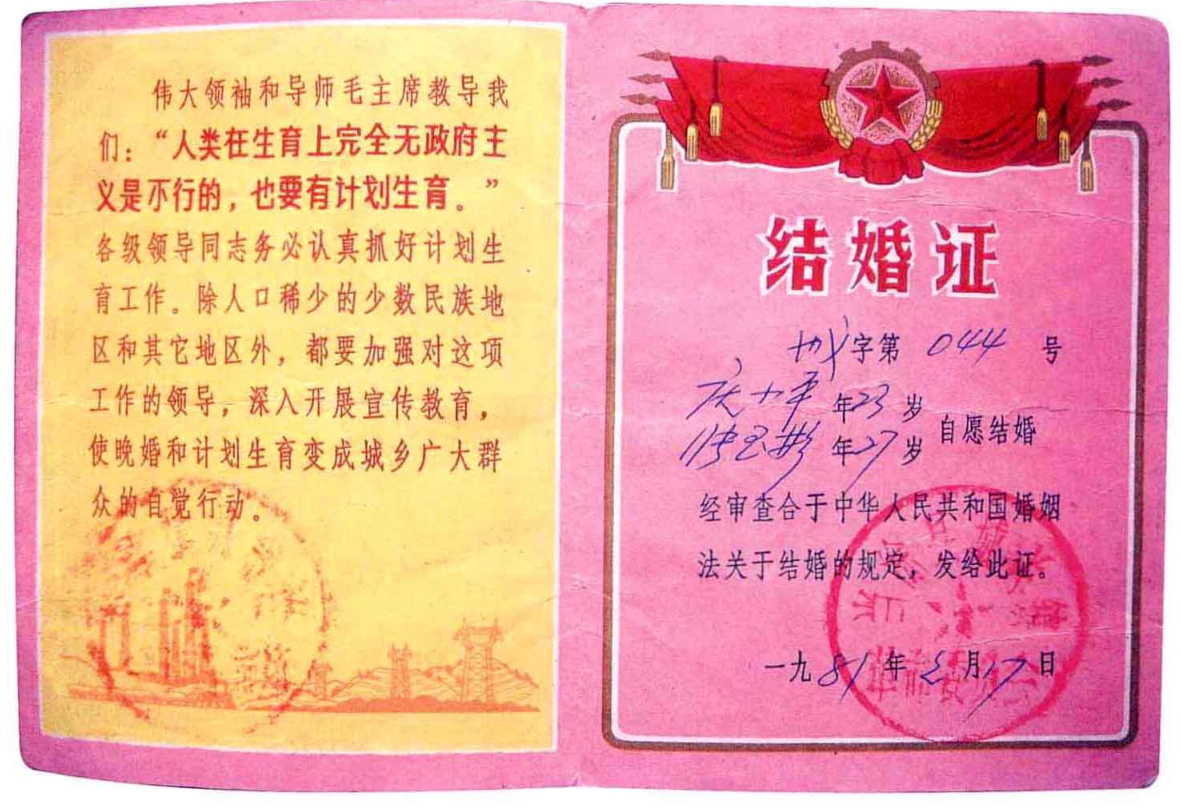 伟大领袖和导师毛主席教导我
们：“人类在生育上完全无政府主
义是不行的，也要有计划生育。”
各级领导同志务必认真抓好计划生
育工作。除人口稀少的少数民族地
区和其它地区外，都要加强对这项
工作的领导，深入开展宣传教育，
使晚婚和计划生育变成城乡广大群
众的自觉行动。
结婚证
字第 044 号
年23岁
年27岁
自愿结婚
经审查合于中华人民共和国婚姻
法关于结婚的规定，发给此证。
一九81年 月17日